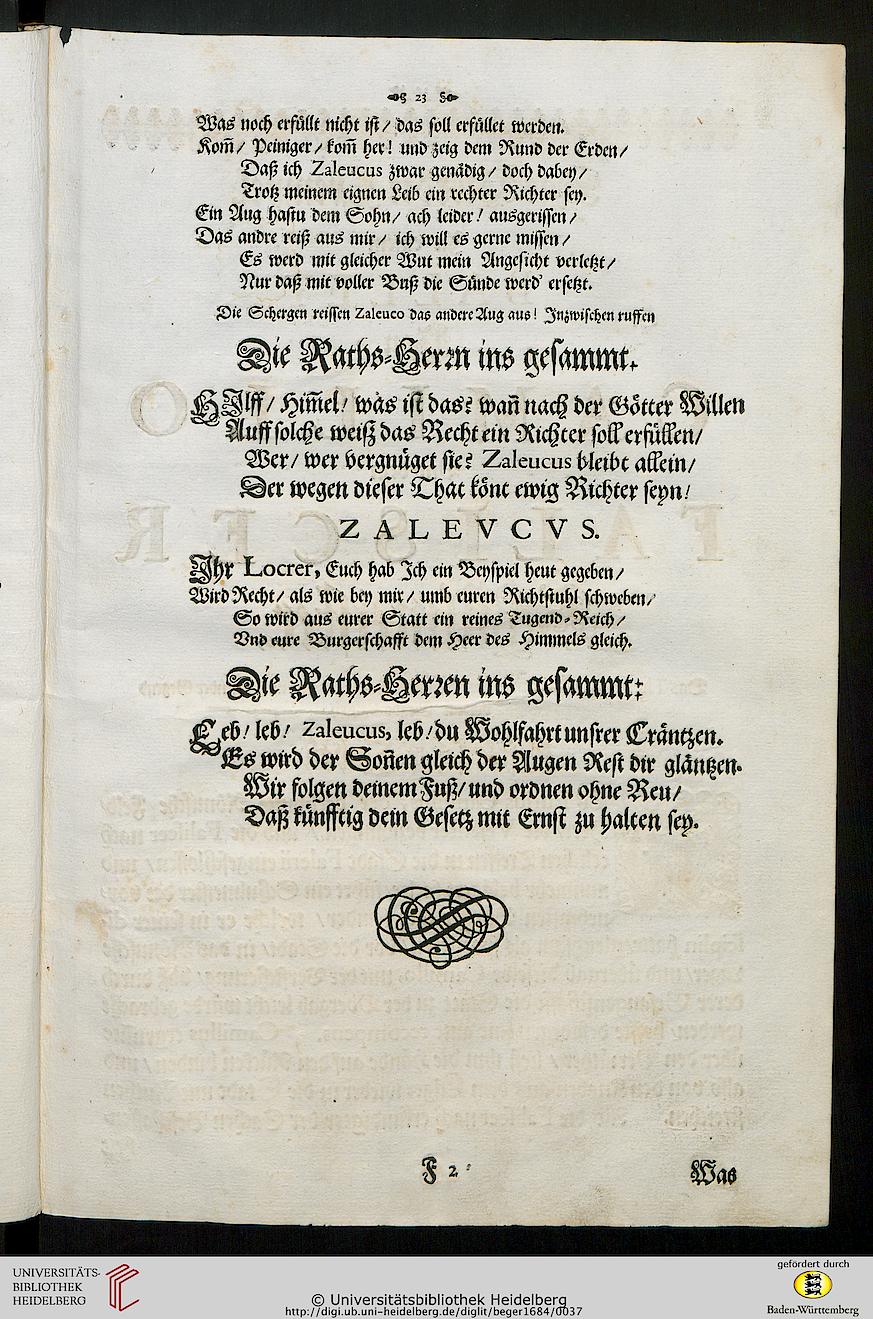 23
Was noch erfüllt nicht ist / das soll erfüllet werden.
Kom̃ / Peiniger / kom̃ her! und zeig dem Rund der Erden /
Daß ich Zaleucus zwar genädig / doch dabey /
Trotz meinem eignen Leib ein rechter Richter sey.
Ein Aug hastu dem Sohn / ach leider! ausgerissen /
Das andre reiß aus mir / ich will es gerne missen /
Es werd mit gleicher Wut mein Angesicht verletzt /
Nur daß mit voller Buß die Sünde werd ersetzt.
Die Schergen reissen Zaleuco das andere Aug aus! Inzwischen ruffen
Die Raths-Herꝛn ins gesammt.
HIlff / Him̃el! was ist das? wañ nach der Götter Willen
Auff solche weiß das Recht ein Richter soll erfüllen /
Wer / wer vergnüget sie? Zaleucus bleibt allein /
Der wegen dieser That könt ewig Richter seyn!
ZALEVCVS.
Ihr Locrer, Euch hab Ich ein Beyspiel heut gegeben /
Wird Recht / als wie bey mir / umb euren Richtstuhl schweben /
So wird aus eurer Statt ein reines Tugend-Reich /
Vnd eure Burgerschafft dem Heer des Himmels gleich.
Die Raths-Herꝛen ins gesammt:
Leb! leb! Zaleucus, leb! du Wohlfahrt unsrer Cräntzen.
Es wird der Soñen gleich der Augen Rest dir gläntzen.
Wir folgen deinem Fuß / und ordnen ohne Reu /
Daß künfftig dein Gesetz mit Ernst zu halten sey.
F 2
Was
UNIVERSITÄTS-
BIBLIOTHEK
HEIDELBERG
© Universitätsbibliothek Heidelberg
http://digi.ub.uni-heidelberg.de/diglit/beger1684/0037
gefördert durch
Baden-Württemberg